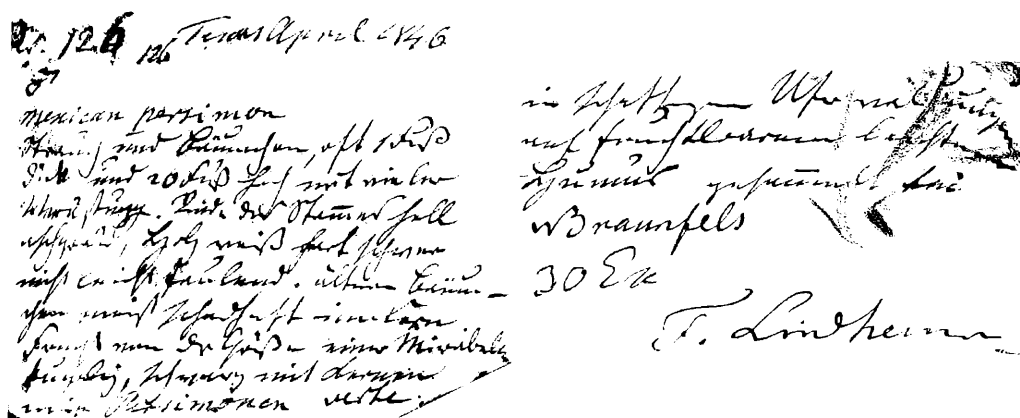 No. 126 126 Texas April 1846
mexican persimon
Strauch und Bäumchen, oft 1 Fuß
dick und 20 Fuß hoch mit vieler
Rinde des Stammes hell
aschgrau, Holz weiß hart schwer
nicht leicht faulend. ältere Bäum-
chen meist schadhaft im Kern
Frucht von der Größe einer Mirabelle
kuglig, schwarz mit Kernen
wie Persimonen
in schattigen Uferwaldungen
auf fruchtbarem leichten
Humus gesammelt bei
NBraunfels
30 Ex
F. Lindheimer